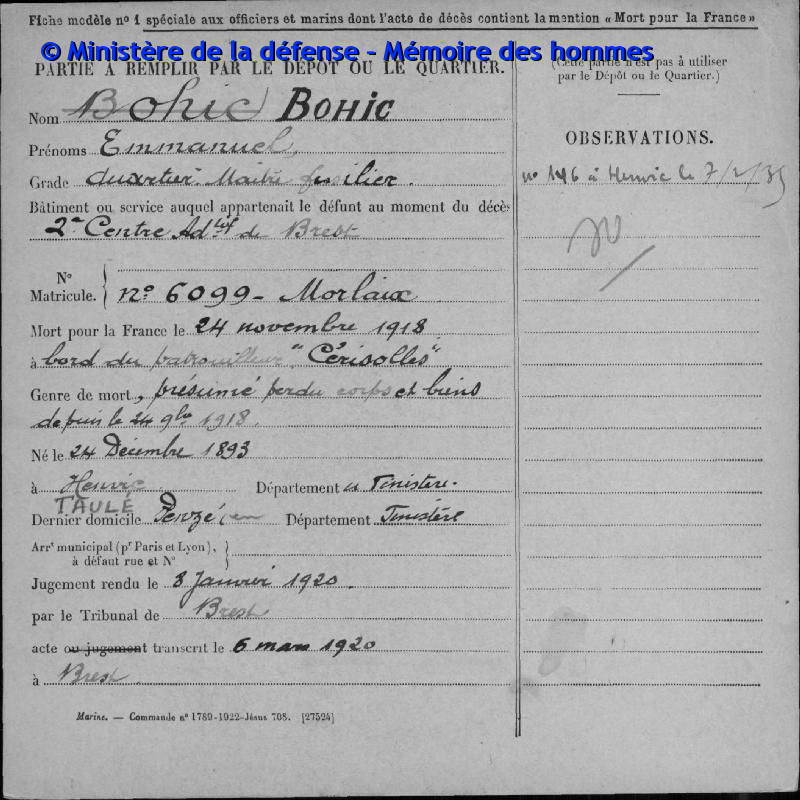 Fiche modèle n° 1 spéciale aux officiers et marins dont l'acte de décès contient la mention « Mort pour la France »
© Ministère de la défense - Mémoire des hommes
PARTIE A REMPLIR PAR LE DÉPÔT OU LE QUARTIER.
Nom Bohic BOHIC
Prénoms Emmanuel,
Grade Quartier Maître fusilier.
Bâtiment ou service auquel appartenait le défunt au moment du décès
2e Centre Adtif de Brest
N° Matricule. n° 6099 - Morlaix
Mort pour la France le 24 novembre 1918
à bord du patrouilleur "Cérisolles"
Genre de mort, présumé perdu corps et biens
depuis le 24 9bre 1918.
Né le 24 Décembre 1893
à Henvic Département du Finistère.
TAULÉ
Dernier domicile Penzé Département Finistère
Arrt municipal (pr Paris et Lyon), à défaut rue et N°
Jugement rendu le 8 Janvier 1920.
par le Tribunal de Brest
acte ou jugement transcrit le 6 mars 1920
à Brest.
Marine. — Commande n° 1789-1922-Jésus 708. [27524]
(Cette partie n'est pas à utiliser
par le Dépôt ou le Quartier.)
OBSERVATIONS.
n° 146 à Henvic le 7/2/35